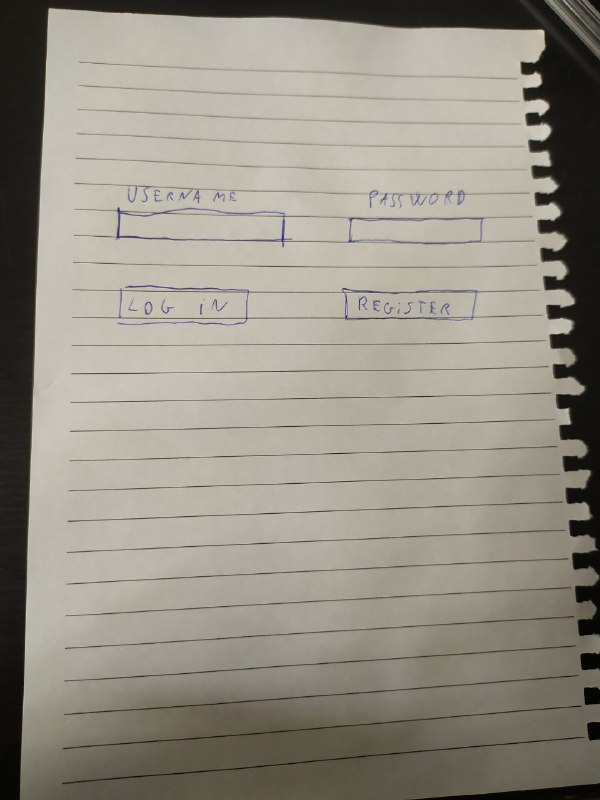 USERNAME PASSWORD
LOG iN REGiSTER